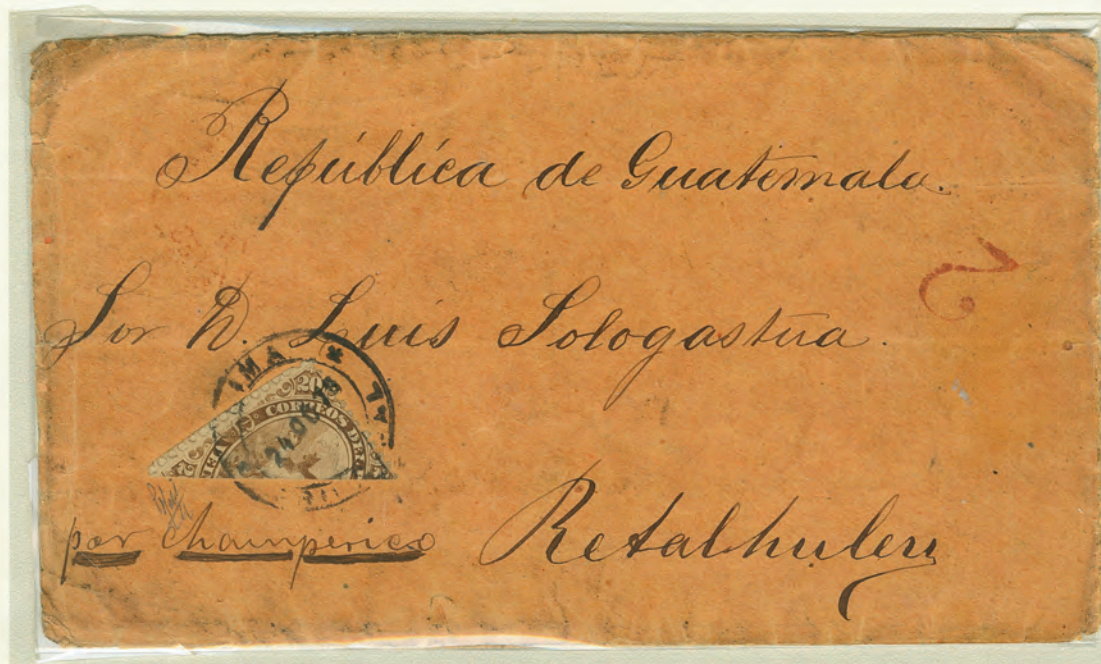 República de Guatemala.
2
Sor D. Luis Sologastúa.
IMA *
20
CORREOS DEL
24 OCT
por Champerico
Retalhuleu